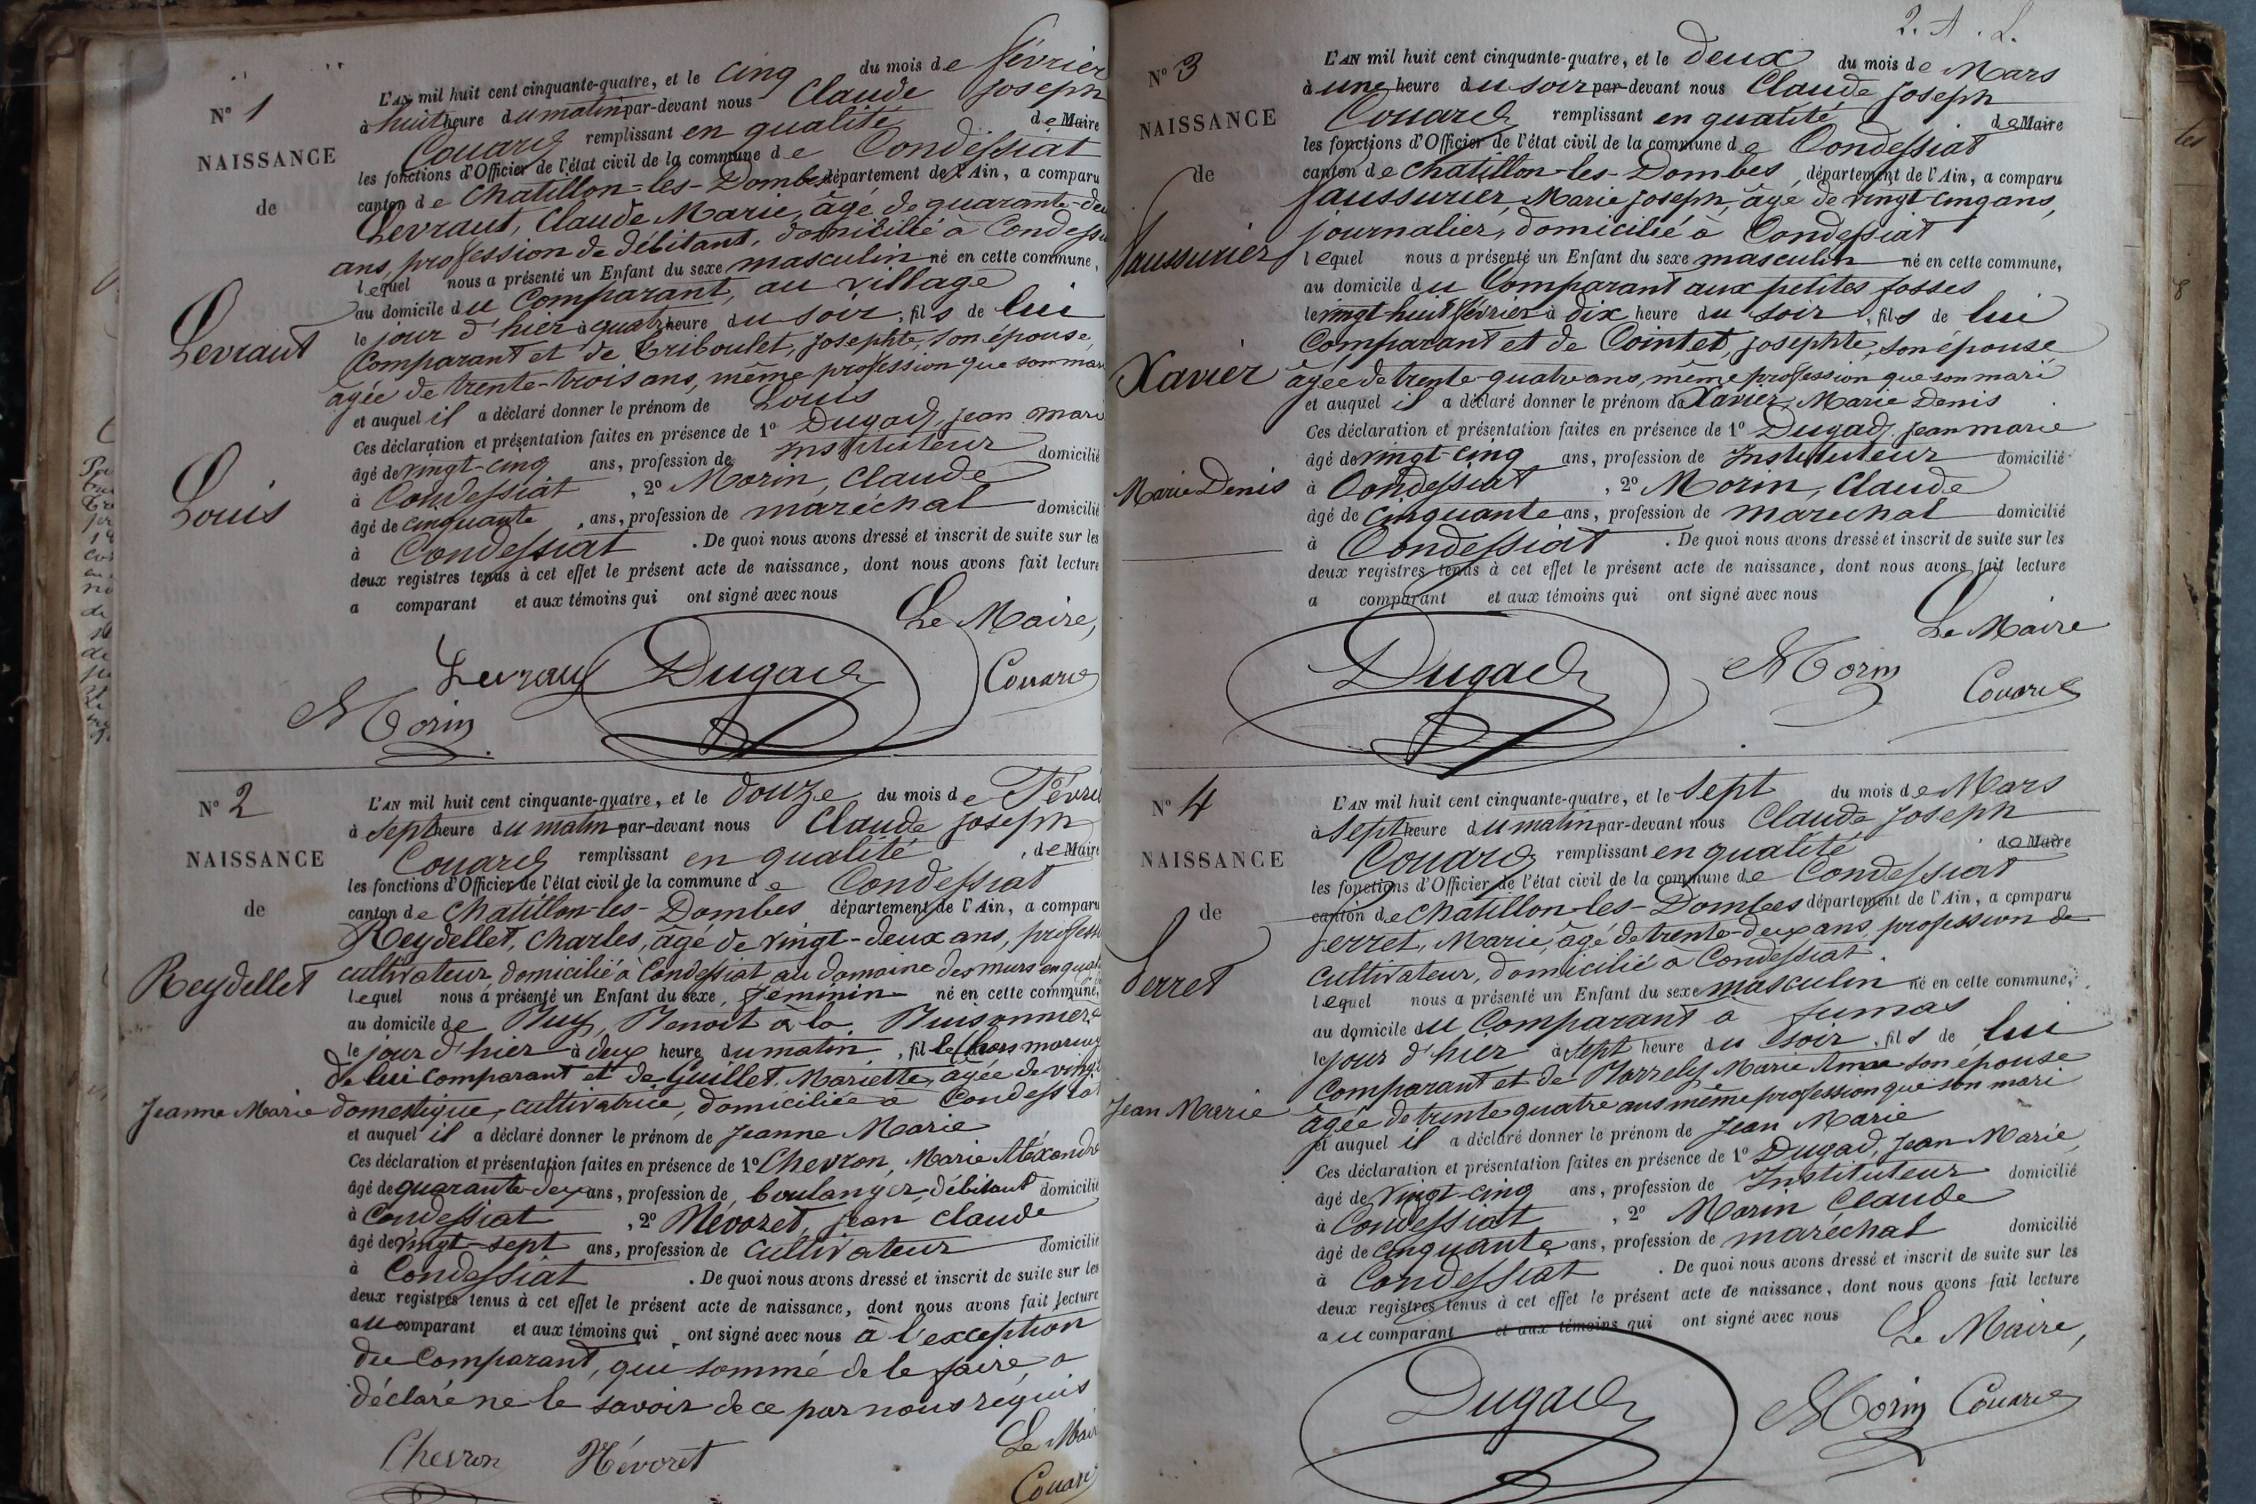 N° 1
NAISSANCE
de
Levraut
Louis
L'AN mil huit cent cinquante-quatre, et le cinq du mois de février
à huit heure du matin par-devant nous Claude Joseph
Couard remplissant en qualité de Maire
les fonctions d'Officier de l'état civil de la commune de Condeissiat
canton de Chatillon-les-Dombes département de l'Ain, a comparu
Levraut, Claude Marie, âgé de quarante-deu
ans, profession de débitant, domicilié à Condessi
lequel nous a présenté un Enfant du sexe masculin né en cette commune,
au domicile du Comparant, au village
le jour d'hier à quatre heure du soir, fils de lui
Comparant et de Triboulet, Josephte, son épouse,
agée de trente-trois ans, même profession que son mari
et auquel il a déclaré donner le prénom de Louis
Ces déclaration et présentation faites en présence de 1° Dugad, jean mari
âgé de vingt-cinq ans, profession de Instituteur domicilié
à Condessiat, 2° Morin, Claude
âgé de cinquante, ans, profession de maréchal domicilié
à Condessiat. De quoi nous avons dressé et inscrit de suite sur les
deux registres tenus à cet effet le présent acte de naissance, dont nous avons fait lecture
a comparant et aux témoins qui ont signé avec nous
Le Maire,
Levraut Dugad Couard
Morin
N° 2
NAISSANCE
de
Reydellet
Jeanne Marie
L'AN mil huit cent cinquante-quatre, et le douze du mois de Févri
à sept heure du matin par-devant nous Claude Joseph
Couard remplissant en qualité, de Maire
les fonctions d'Officier de l'état civil de la commune de Condessiat
canton de Chatillon-les-Dombes département de l'Ain, a comparu
Reydellet, Charles, âgé de vingt-deux ans, professi
cultivateur, domicilié à Condessiat au domaine des murs en quali
lequel nous a présenté un Enfant du sexe féminin né en cette commune,
au domicile de Puy, Benoit à la Buisonnière
le jour d'hier à deux heure du matin, fille (hors mariag
de lui comparant et de Guillet, Mariette, âgée de vingt
domestique, cultivatrice, domiciliée à Condessiat
et auquel il a déclaré donner le prénom de Jeanne Marie
Ces déclaration et présentation faites en présence de 1° Chevron, Marie Aléxandre
âgé de quarante-deux ans, profession de boulanger, débitant domicilié
à Condessiat, 2° Névoret, jean claude
âgé de vingt-sept ans, profession de cultivateur domicilié
à Condessiat. De quoi nous avons dressé et inscrit de suite sur les
deux registres tenus à cet effet le présent acte de naissance, dont nous avons fait lecture
au comparant et aux témoins qui ont signé avec nous à l'exception
du Comparant, qui sommé de le faire, a
déclaré ne le savoir de ce par nous réquis
Le Mair
Chevron Névoret Couard
2. A. L.
N° 3
NAISSANCE
de
Jaussurier
Xavier
Marie Denis
L'AN mil huit cent cinquante-quatre, et le deux du mois de Mars
à une heure du soir par-devant nous Claude Joseph
Couard remplissant en qualité de Maire
les fonctions d'Officier de l'état civil de la commune de Condessiat
canton de Chatillon-les-Dombes, département de l'Ain, a comparu
Jaussurier, Marie Joseph, âgé de vingt-cinq ans,
journalier, domicilié à Condessiat
lequel nous a présenté un Enfant du sexe masculin né en cette commune,
au domicile du Comparant aux petites fosses
le vingt huit février à dix heure du soir, fils de lui
Comparant et de Cointet, Josephte, son épouse
âgée de trente-quatre ans, même profession que son mari
et auquel il a déclaré donner le prénom de Xavier, Marie Denis
Ces déclaration et présentation faites en présence de 1° Dugad, jean marie
âgé de vingt-cinq ans, profession de Instituteur domicilié
à Condessiat, 2° Morin, Claude
âgé de cinquante ans, profession de maréchal domicilié
à Condessiat. De quoi nous avons dressé et inscrit de suite sur les
deux registres tenus à cet effet le présent acte de naissance, dont nous avons fait lecture
a comparant et aux témoins qui ont signé avec nous
Le Maire
Dugad Morin Couard
N° 4
NAISSANCE
de
Ferret
Jean Marie
L'AN mil huit cent cinquante-quatre, et le Sept du mois de Mars
à Sept heure du matin par-devant nous Claude Joseph
Couard remplissant en qualité de Maire
les fonctions d'Officier de l'état civil de la commune de Condessiat
canton de Chatillon-les-Dombes département de l'Ain, a comparu
Ferret, Marie, âgé de trente-deux ans, profession de
Cultivateur, domicilié à Condessiat
lequel nous a présenté un Enfant du sexe masculin né en cette commune,
au domicile du Comparant à Jumas
le jour d'hier à Sept heure du soir, fils de lui
Comparant et de Marie Anne son épouse
âgée de trente quatre ans même profession que son mari
et auquel il a déclaré donner le prénom de Jean Marie
Ces déclaration et présentation faites en présence de 1° Dugad, Jean Marie,
âgé de vingt-cinq ans, profession de Instituteur domicilié
à Condessiat, 2° Morin Claude
âgé de cinquante ans, profession de maréchal domicilié
à Condessiat. De quoi nous avons dressé et inscrit de suite sur les
deux registres tenus à cet effet le présent acte de naissance, dont nous avons fait lecture
au comparant et aux témoins qui ont signé avec nous
Le Maire,
Dugad Morin Couard